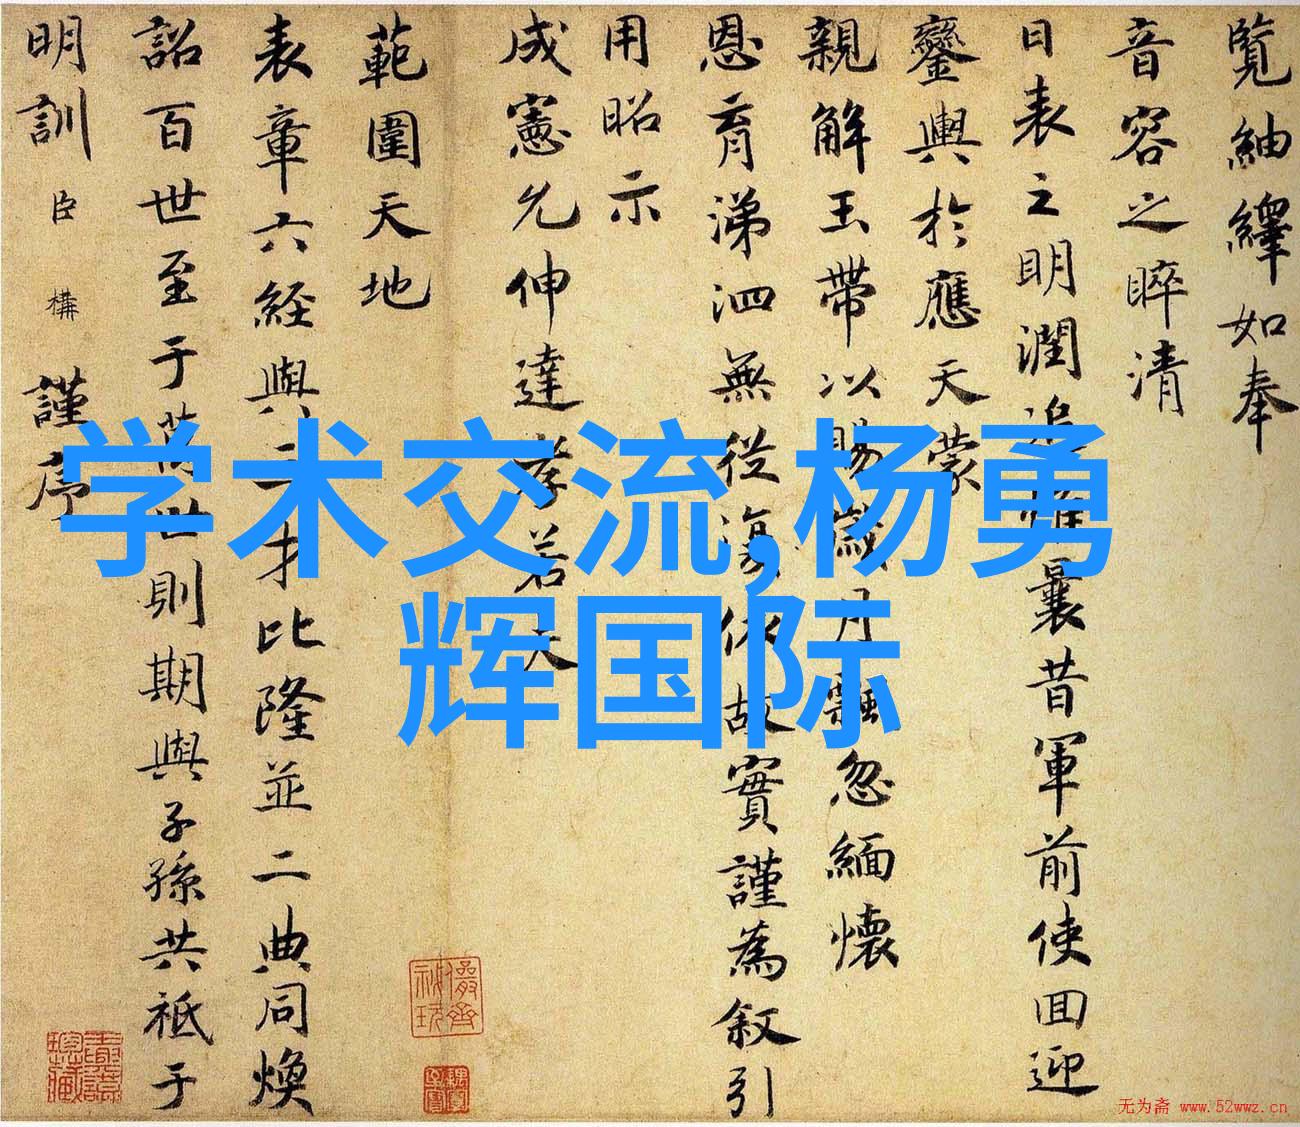 覽紬繹如奉
音容之睟清
日表之明潤追惟曩昔軍前使回迎
鑾輿於應天蒙
親解玉帶以賜歲月飄忽緬懷
恩育涕泗無從復依故實謹為叙引
用昭示
成憲允伸達孝若天
範圍天地
表章六経與三才比隆並二典同煥
詔百世至于萬世則期與子孫共祗于
明訓臣構謹序
学术交流,杨勇
辉国际
无为斋 www.52wwz.cn